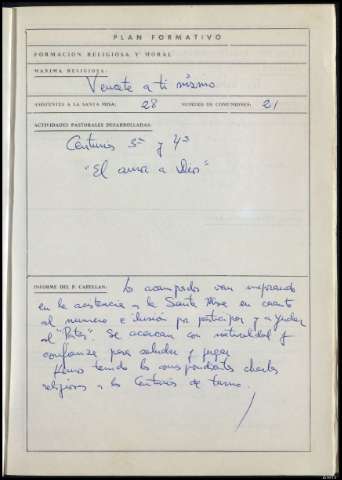 PLAN FORMATIVO
FORMACION RELIGIOSA Y MORAL
MAXIMA RELIGIOSA:
Vencete a ti mismo
ASISTENTES A LA SANTA MISA: 28 NUMERO DE COMUNIONES: 21
ACTIVIDADES PASTORALES DESARROLLADAS:
Centurias 3ª y 4ª
"El amor a Dios"
INFORME DEL P. CAPELLAN: Los acampados van mejorando
en la asistencia a la Santa Misa en cuanto
al numero e ilusión por participar y ayudar
al "Pater". Se acercan con naturalidad y
confianza para saludar y jugar.
Hemos tenido las correspondientes charlas
religiosas a las Centurias de turno.